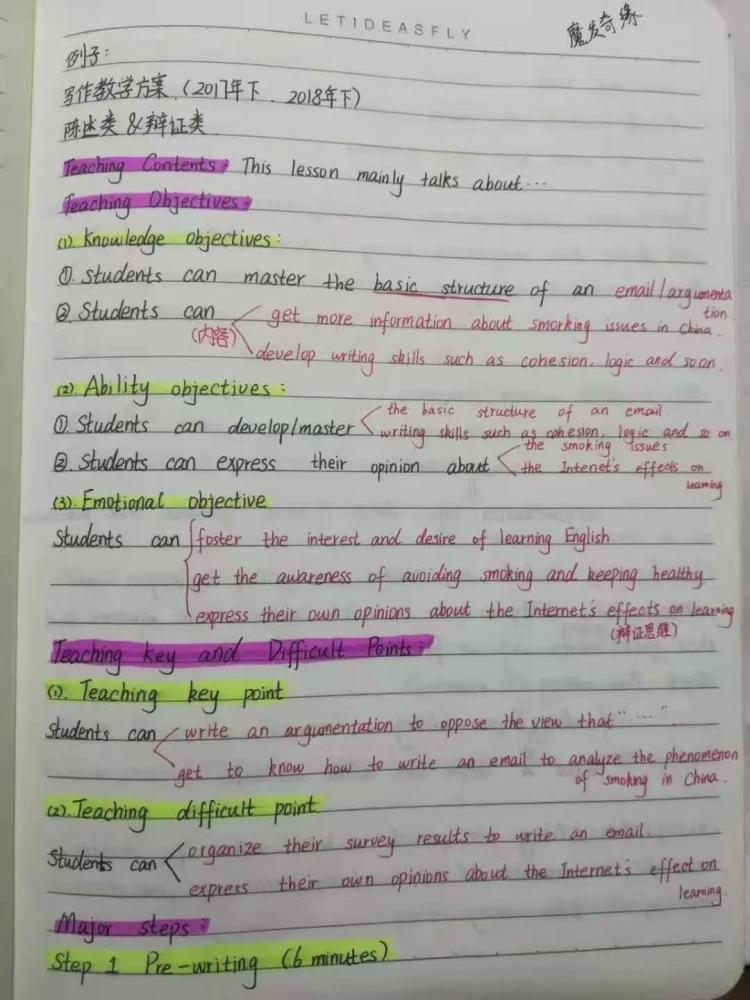 LETIDEASFLY
魔发奇缘
例子:
写作教学方案 (2017年下、2018年下)
陈述类 & 辩证类
Teaching Contents: This lesson mainly talks about...
Teaching Objectives:
(1). Knowledge objectives:
①. Students can master the basic structure of an email/argumenta
tion.
②. Students can get more information about smorking issues in China.
(内容)
develop writing skills such as cohesion, logic and so on.
(2). Ability objectives:
the basic structure of an email.
①. Students can develop/master writing skills such as cohesion, logic and so on.
the smoking issues
②. Students can express their opinion about the Intenet's effects on
learning
(3). Emotional objective
Students can foster the interest and desire of learning English
get the awareness of avoiding smoking and keeping healthy
express their own opinions about the Internet's effects on learning
(辩证思维)
Teaching key and Difficult Points:
(1). Teaching key point
Students can write an argumentation to oppose the view that "...".
get to know how to write an email to analyze the phenomenon
of smoking in China.
(2). Teaching difficult point.
Students can organize their survey results to write an email.
express their own opinions about the Internet's effect on
learning.
Major steps:
Step 1 Pre-writing (6 minutes)